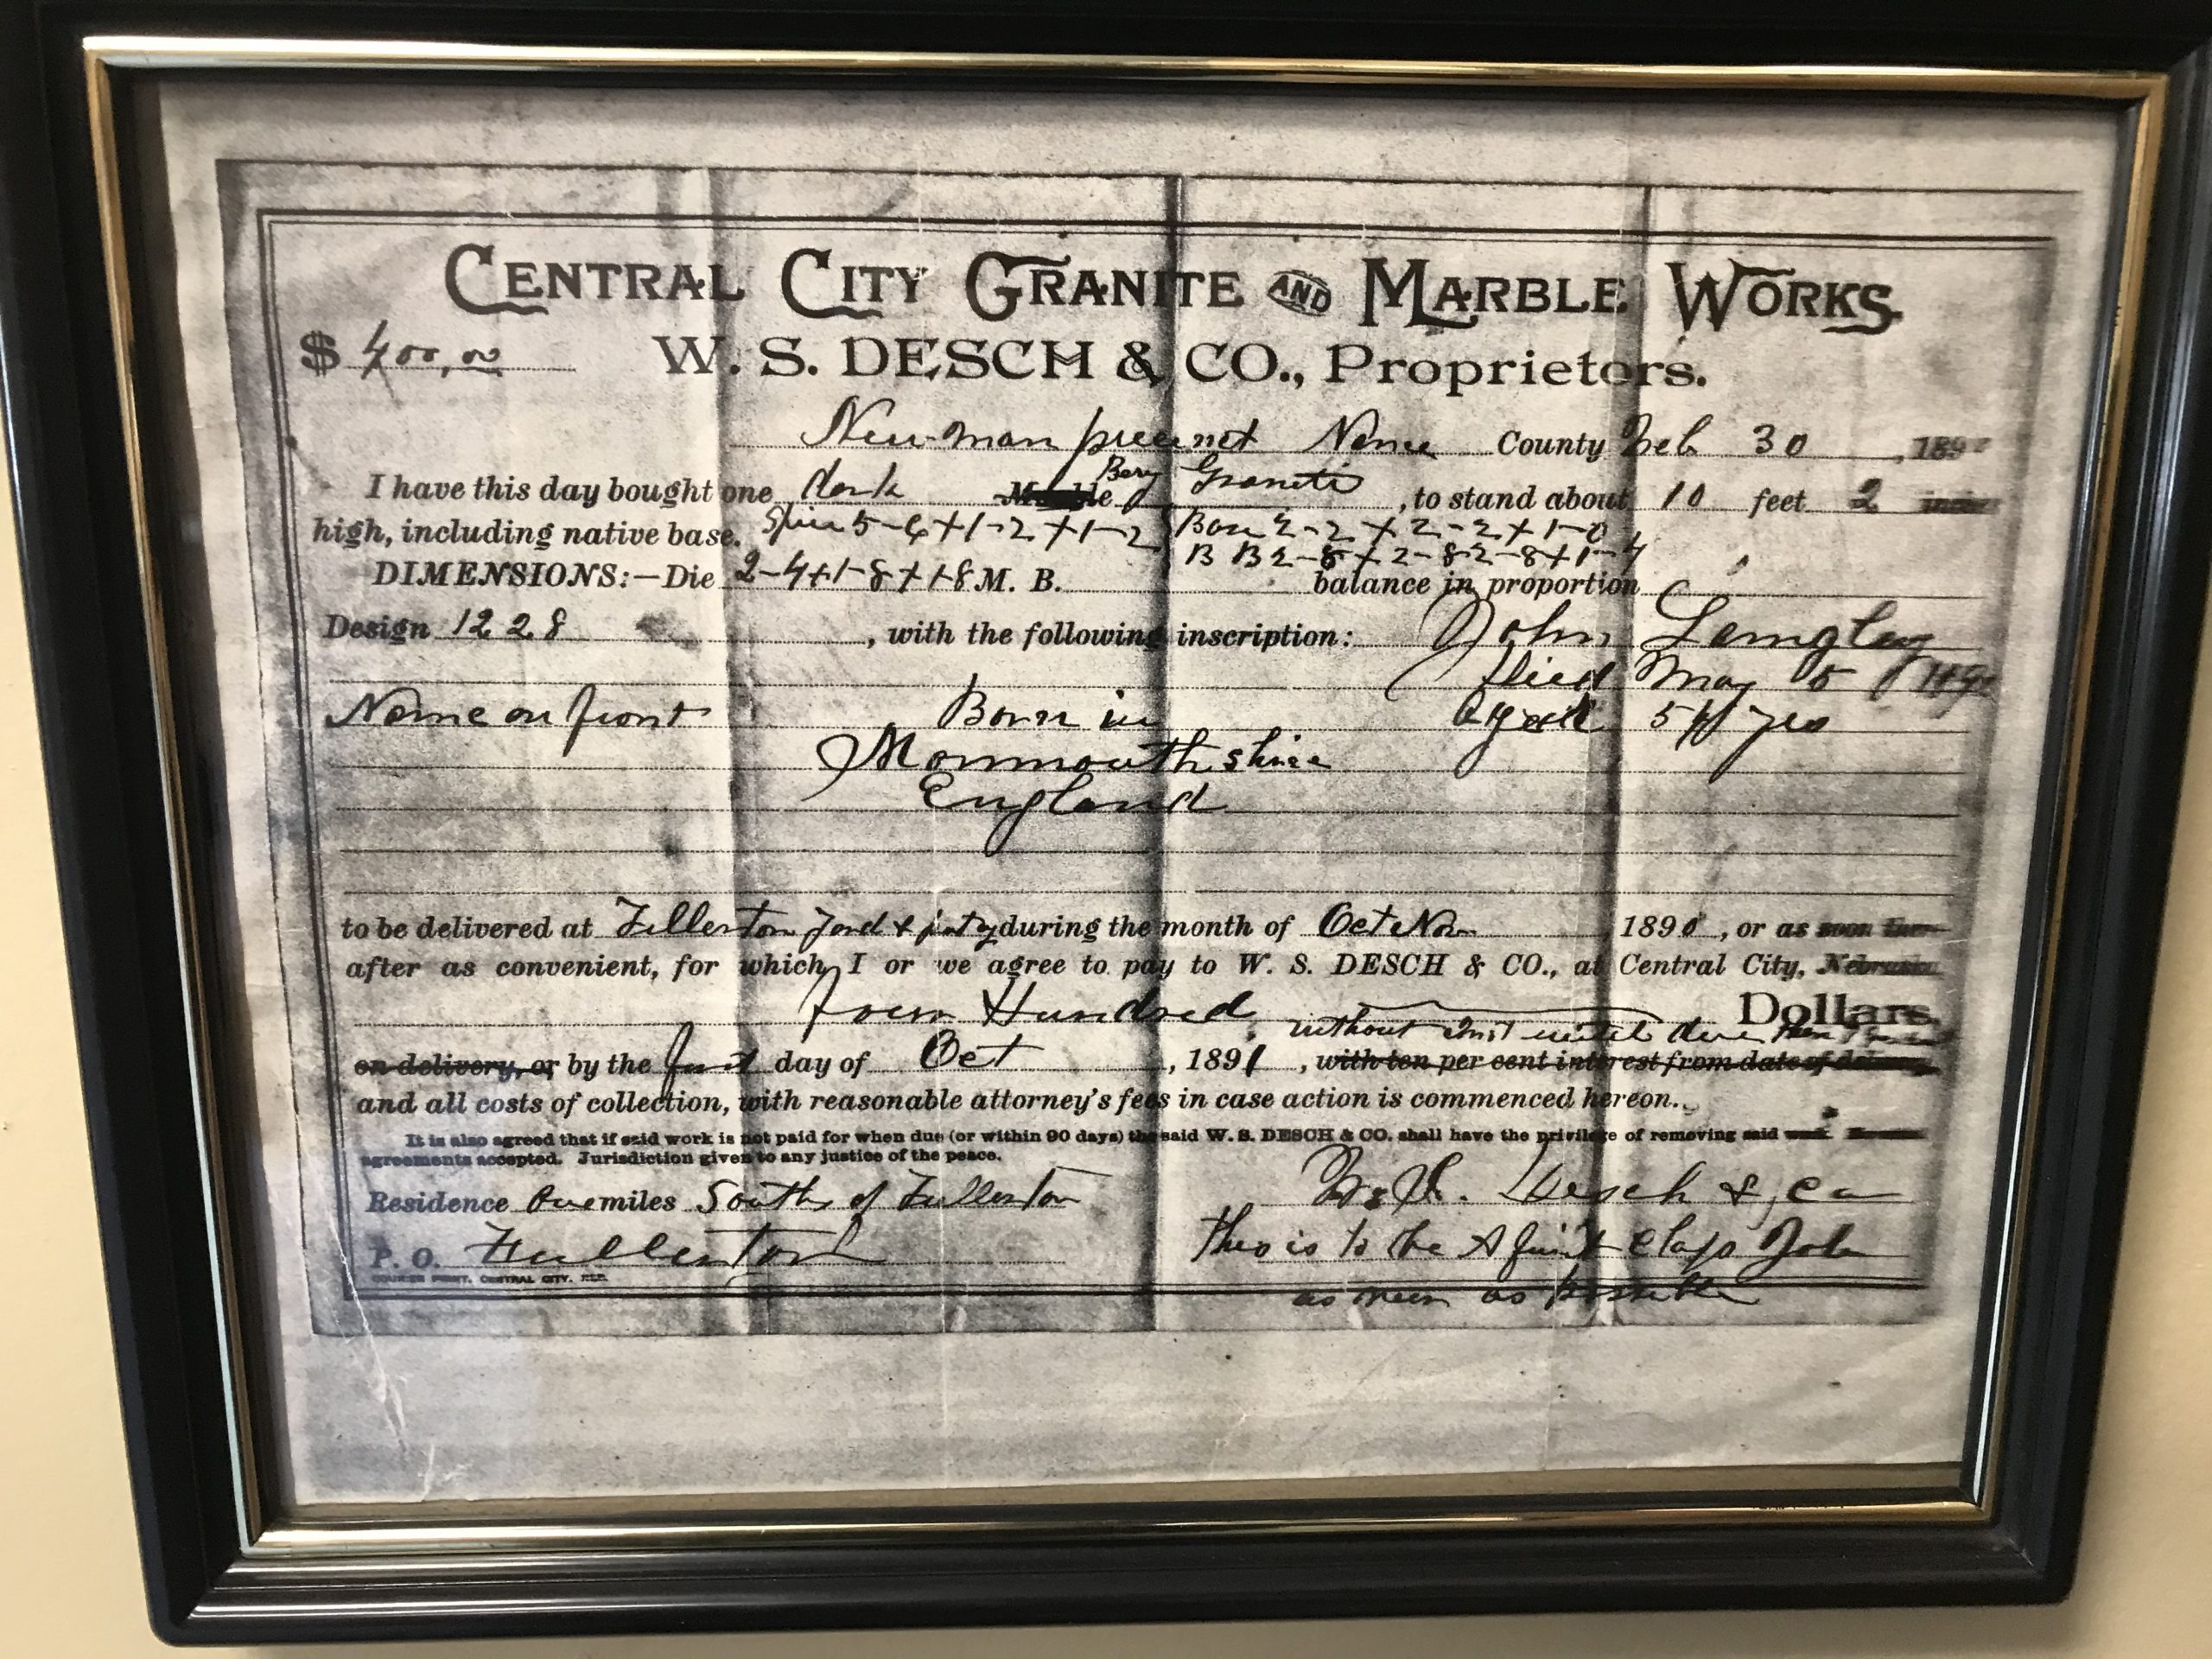 CENTRAL CITY GRANITE AND MARBLE WORKS.
$ 400.00 W. S. DESCH & CO., Proprietors.
Newman precinct Nance County Feb 30, 189
I have this day bought one dark Marble Bery Granite, to stand about 10 feet 2 inches
high, including native base. Spire 5-6+1-2+1-2 Base 2-2+2-2+1-0
B B 2-8+2-8 2-8+1-4
DIMENSIONS:—Die 2-4+1-8+1-8 M. B. balance in proportion
Design 1228, with the following inscription: John Langley
died May 5
Name on front Born in Aged 54 yrs
Monmouthshire
England
to be delivered at Fullerton during the month of Oct Nov 1891, or as soon there-
after as convenient, for which I or we agree to pay to W. S. DESCH & CO., at Central City, Nebraska
Four Hundred Dollars
without Int until due then
on delivery, or by the first day of Oct, 1891, with ten per cent interest from date of delivery,
and all costs of collection, with reasonable attorney's fees in case action is commenced hereon.
It is also agreed that if said work is not paid for when due (or within 90 days) the said W. S. DESCH & CO. shall have the privilege of removing said work.
agreements accepted. Jurisdiction given to any justice of the peace.
Residence miles South of Fullerton W. S. Desch & Co
P. O. Fullerton This is to be A first class Job
COURIER PRINT, CENTRAL CITY, NEB.
as as possible